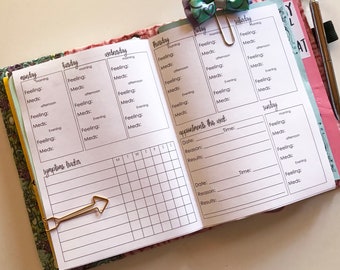 monday
tuesday
wednesday
morning
Feeling:
Meds:
afternoon
Feeling:
Meds:
Evening
Feeling:
Meds:
Feeling:
Meds:
afternoon
Feeling:
Meds:
Evening
Feeling:
Meds:
morning
Feeling:
Meds:
afternoon
Feeling:
Meds:
Evening
Feeling:
Meds:
symptoms tracker
M T W T F S S
Feeling:
Meds:
afternoon
Feeling:
Meds:
Evening
Feeling:
Meds:
Feeling:
Meds:
afternoon
Feeling:
Meds:
Evening
Feeling:
Meds:
Feeling:
Meds:
afternoon
Feeling:
Meds:
Evening
Feeling:
Meds:
appointments this week
Date: Time:
Reason:
Results:
Date: Time:
Reason:
Results:
sunday
morning
Feeling:
Meds:
afternoon
Feeling:
Meds:
Evening
Feeling:
Meds: